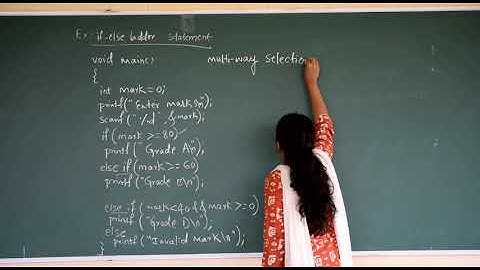 Ex:- if-else ladder statement
void main() multi-way selection
{
int mark=0;
printf("Enter mark\n");
scanf("%d", &mark);
if (mark >=80)
printf("Grade A\n");
else if (mark>=60)
printf("Grade B\n");
else if (mark<40 && mark>=0)
printf("Grade D\n");
else
printf("Invalid mark\n");
}